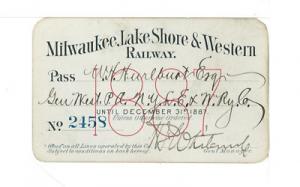 Milwaukee, Lake Shore & Western
Railway.
1887
Pass W. J. Hurlburt Esq.
Gen West. P. A. N. Y. L. E. & W. Ry Co
UNTIL DECEMBER 31st 1887.
Unless otherwise ordered
No. 2458
Good on all Lines operated by this Co.
Subject to conditions on back hereof.
Gen'l Manager.